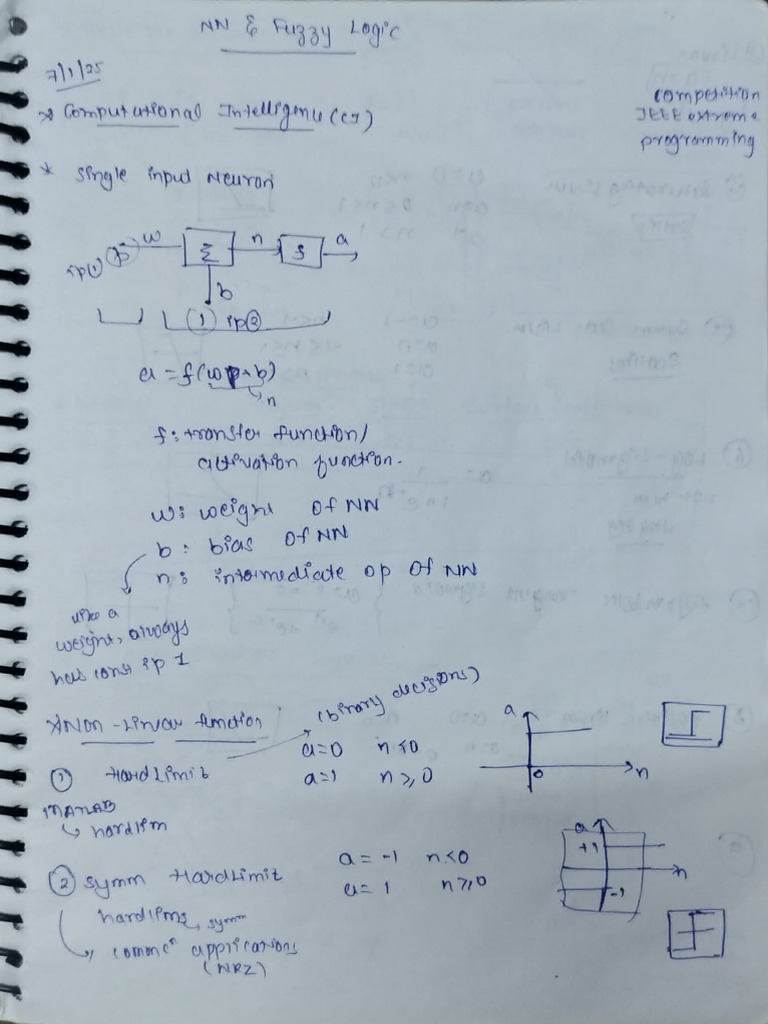 NN & Fuzzy Logic
7/1/25
* Computational Intelligence (CI)
competition
IEEE extreme
programming
* Single input Neuron
ip① p w Σ n f a
b
① ip②
a = f(wp + b)
n
f: transfer function/
activation function.
w: weight of NN
b: bias of NN
n: intermediate op of NN
like a
weight, always
has const ip 1
* Non-Linear function
(binary decisions)
① HardLimit
a=0 n<0
a=1 n≥0
a
0
n
MATLAB
↳ hardlim
② Symm HardLimit
a = -1 n<0
a = 1 n≥0
a
+1
n
-1
hardlims, symm
commn applications
(NRZ)